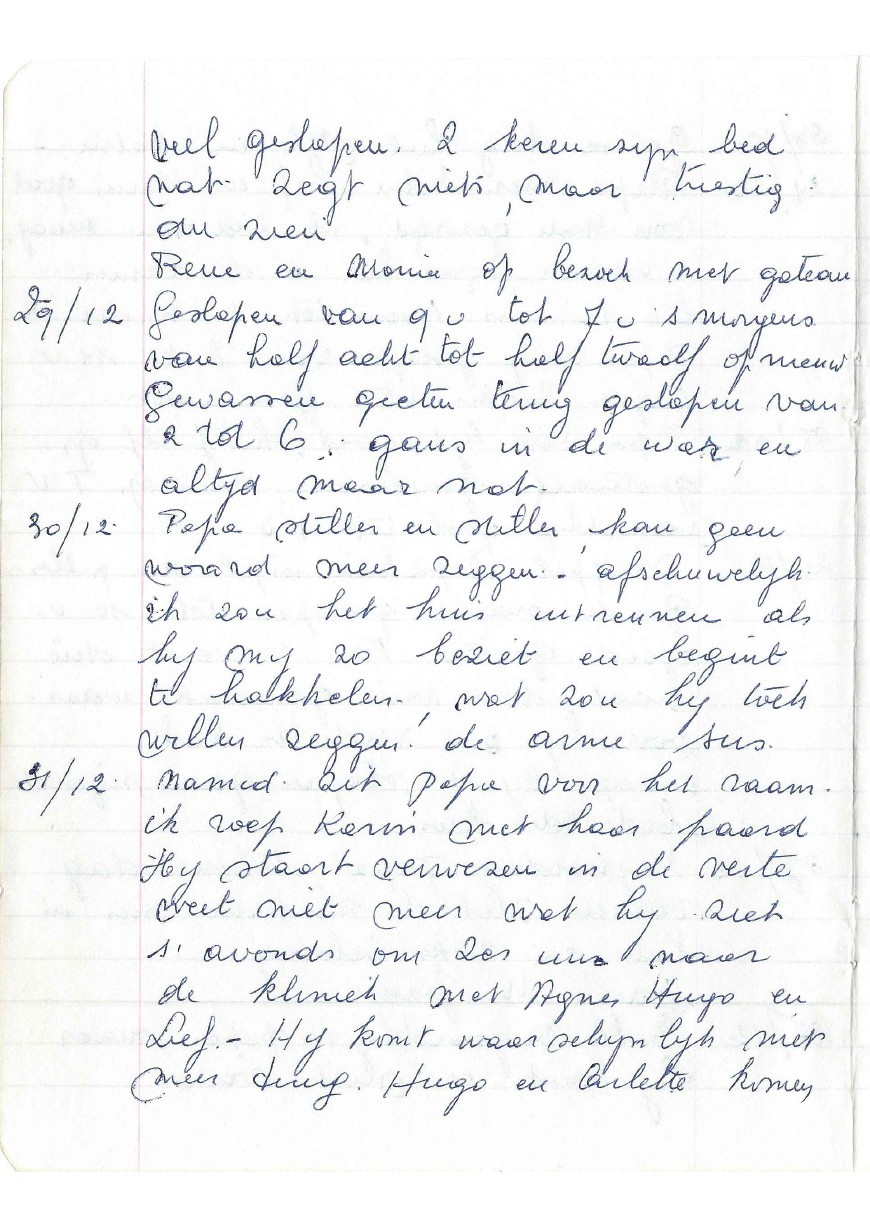 veel geslapen. 2 keren zijn bed
nat. zegt niets, maar triestig
om zien
Rene en Maria op bezoek met gateau
29/12 Geslapen van 9 u tot 7 u s morgens
van half acht tot half twaalf opnieuw
Gewassen geeten terug geslapen van
2 tot 6. gans in de war en
altyd maar nat.
30/12. Papa stiller en stiller, kan geen
woord meer zeggen.! afschuwelyk
ik zou het huis uitrennen als
hy my zo beziet en begint
te hakkelen, wat zou hy toch
willen zeggen! de arme sus.
31/12. Namid. zit Papa voor het raam.
ik roep Karin met haar paard
Hy staart verwezen in de verte
weet niet meer wat hy ziet
s' avonds om zes uur naar
de kliniek met Agnes Hugo en
Lief. - Hy komt waarschynlyk niet
meer terug. Hugo en Arlette komen